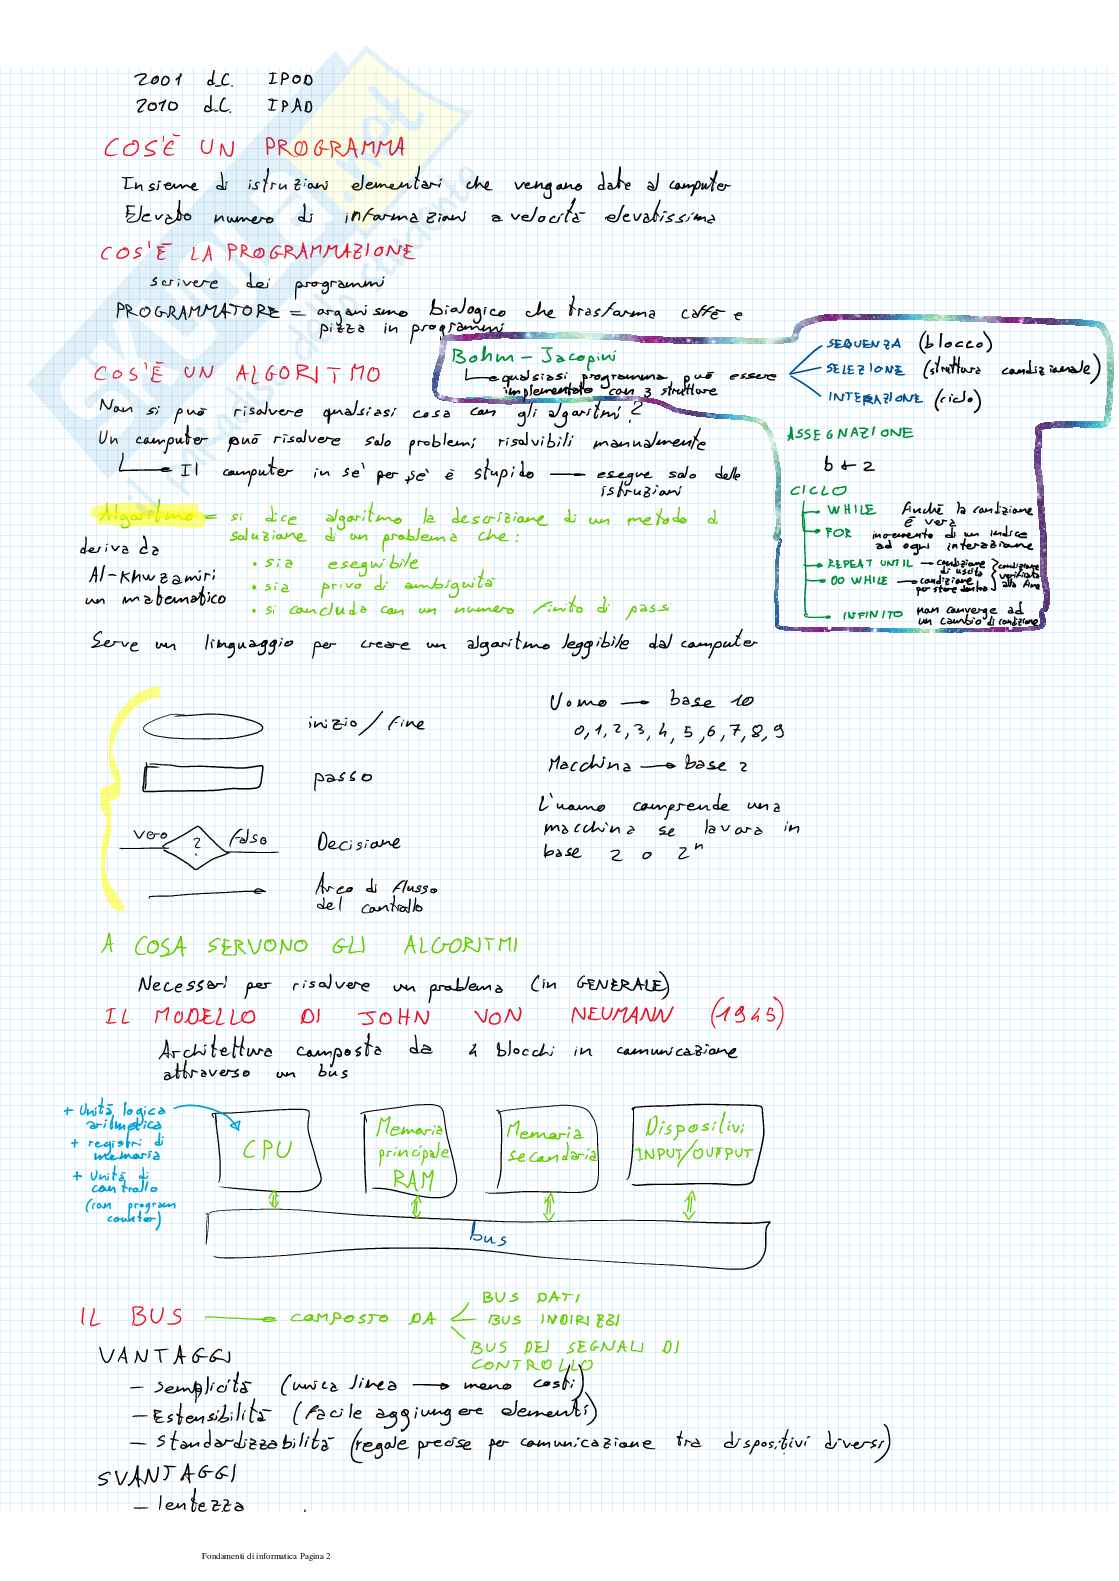 2001 d.C. IPOD
2010 d.C. IPAD
COS'È UN PROGRAMMA
Insieme di istruzioni elementari che vengono date al computer
Elevato numero di informazioni a velocità elevatissima
COS'È LA PROGRAMMAZIONE
scrivere dei programmi
PROGRAMMATORE = organismo biologico che trasforma caffè e
pizza in programmi
Bohm - Jacopini
qualsiasi programma può essere
implementato con 3 strutture
SEQUENZA (blocco)
SELEZIONE (struttura condizionale)
INTERAZIONE (ciclo)
ASSEGNAZIONE
b ← 2
CICLO
WHILE Anche la condizione
è vera
FOR incremento di un indice
ad ogni interazione
REPEAT UNTIL → condizione
di uscita
DO WHILE → condizione
per stare dentro
condizione
verificata
alla fine
INFINITO non converge ad
un cambio di condizione
COS'È UN ALGORITMO
Non si può risolvere qualsiasi cosa con gli algoritmi?
Un computer può risolvere solo problemi risolvibili manualmente
Il computer in sé per sé è stupido — esegue solo delle
istruzioni
Algoritmo = si dice algoritmo la descrizione di un metodo di
soluzione di un problema che:
• sia eseguibile
• sia privo di ambiguità
• si concluda con un numero finito di pass
deriva da
Al-Khwzamiri
un matematico
Serve un linguaggio per creare un algoritmo leggibile dal computer
inizio / fine
passo
vero ? falso Decisione
Arco di flusso
del controllo
Uomo → base 10
0,1,2,3,4,5,6,7,8,9
Macchina → base 2
L'uomo comprende una
macchina se lavora in
base 2 o 2ⁿ
A COSA SERVONO GLI ALGORITMI
Necessari per risolvere un problema (in GENERALE)
IL MODELLO DI JOHN VON NEUMANN (1945)
Architettura composta da 4 blocchi in comunicazione
attraverso un bus
+ Unità logica
aritmetica
+ registri di
memoria
+ Unità di
controllo
(con program
counter)
CPU
Memoria
principale
RAM
Memoria
secondaria
Dispositivi
INPUT/OUTPUT
bus
IL BUS → COMPOSTO DA
BUS DATI
BUS INDIRIZZI
BUS DEI SEGNALI DI
CONTROLLO
VANTAGGI
- semplicità (unica linea → meno costi)
- Estensibilità (facile aggiungere elementi)
- Standardizzabilità (regole precise per comunicazione tra dispositivi diversi)
SVANTAGGI
- lentezza
Fondamenti di informatica Pagina 2